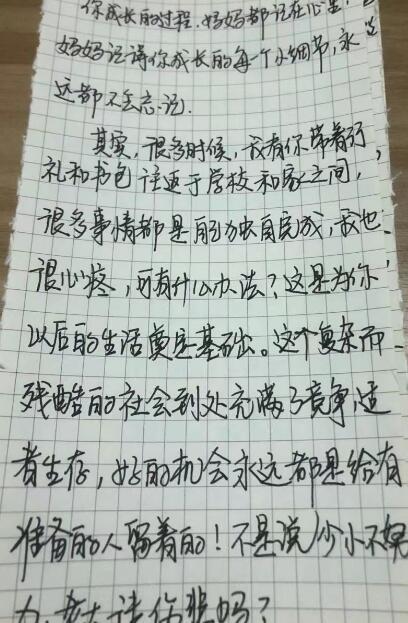 你成长的过程.妈妈都记在心里,
妈妈记请你成长的每一个小细节,永
这都不会忘记.
其实,很多时候,我看你带着行
礼和书包往返于学校和家之间,
很多事情都是自己独自完成,我也
很心疼,可有什么办法?这是为你
以后的生活奠定基础。这个复杂而
残酷的社会到处充满了竞争,适
者生存,好的机会永远都是给有
准备的人留着的!不是说少小不努
力,老大徒伤悲吗?